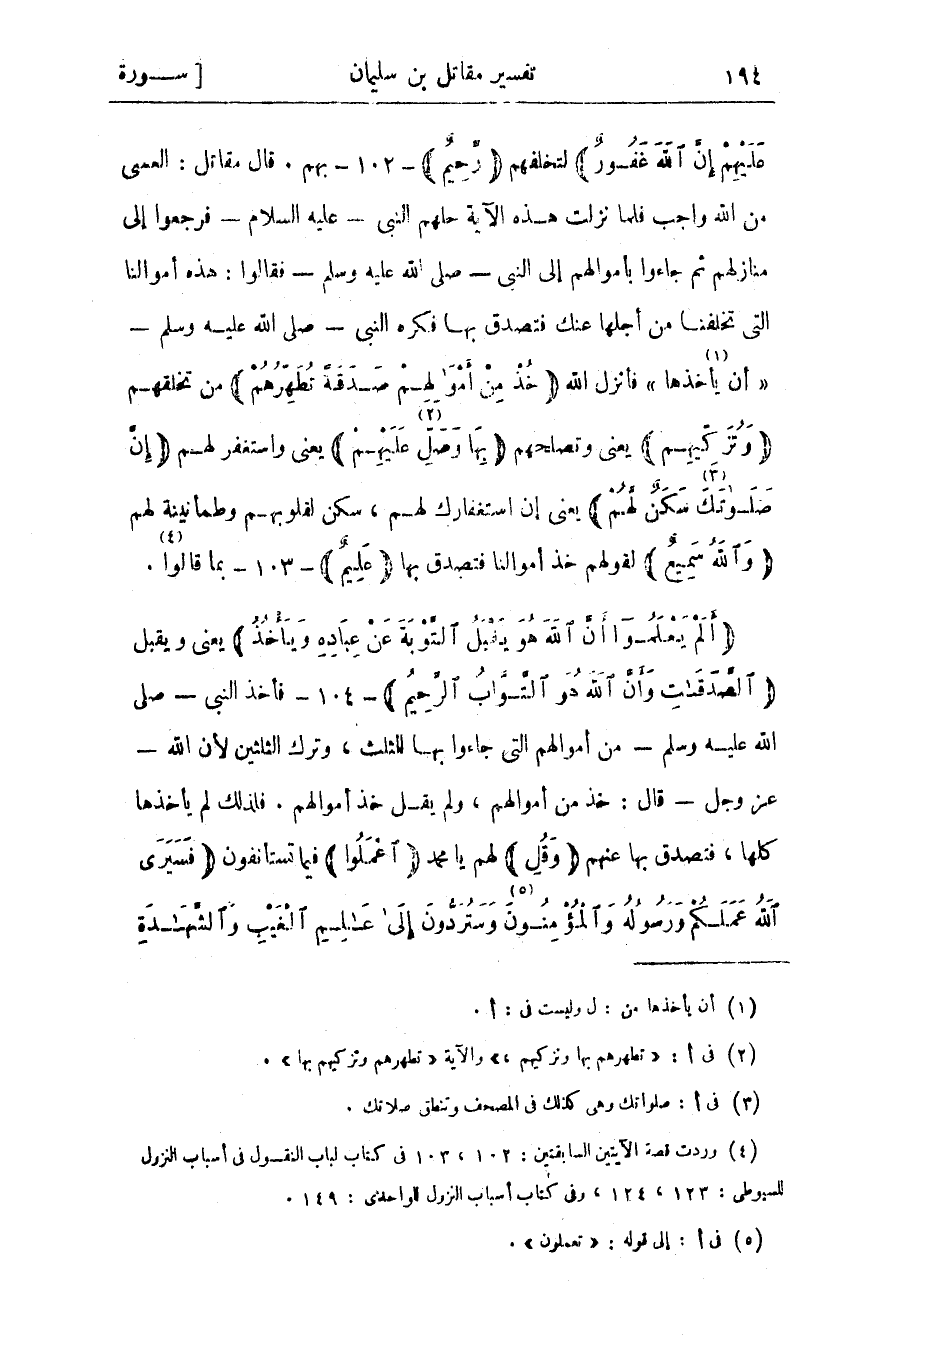 ١٩٤ تفسير مقاتل بن سليمان [ ســورة
عَلَيْهِمْ إِنَّ ٱللَّهَ غَفُـورٌ ﴾ لتخلفهم ﴿ رَّحِيمٌ ﴾ - ١٠٢ - بهم . قال مقاتل : العسى
من الله واجب فلما نزلت هـذه الآية حلهم النبى - عليه السلام - فرجعوا إلى
منازلهم ثم جاءوا بأموالهم إلى النبى - صلى الله عليه وسلم - فقالوا : هذه أموالنا
التى تخلفنـا من أجلها عنك فتصدق بهـا فكره النبى - صلى الله عليـه وسلم -
« أن يأخذها » (١) فأنزل الله ﴿ خُذْ مِنْ أَمْوَٰلِهِـمْ صَـدَقَةً تُطَهِّرُهُمْ ﴾ من تخلفهـم
﴿ وَتُزَكِّيهِـم ﴾ يعنى وتصلحهم ﴿ بِهَا (٢) وَصَلِّ عَلَيْهِـمْ ﴾ يعنى واستغفر لهـم ﴿ إِنَّ
صَلَـوٰتَكَ (٣) سَكَنٌ لَّهُمْ ﴾ يعنى إن استغفارك لهـم ، سكن لقلوبهـم وطمأنينة لهم
﴿ وَٱللَّهُ سَمِيعٌ ﴾ لقولهم خذ أموالنا فتصدق بها ﴿ عَلِيمٌ ﴾ - ١٠٣ - بما قالوا (٤) .
﴿ أَلَمْ يَعْلَمُـوٓا أَنَّ ٱللَّهَ هُوَ يَقْبَلُ ٱلتَّوْبَةَ عَنْ عِبَادِهِ وَيَأْخُذُ ﴾ يعنى ويقبل
﴿ ٱلصَّدَقَـٰتِ وَأَنَّ ٱللَّهَ هُوَ ٱلتَّـوَّابُ ٱلرَّحِيمُ ﴾ - ١٠٤ - فأخذ النبى - صلى
الله عليـه وسلم - من أموالهم التى جاءوا بهـا الثلث ، وترك الثلثين لأن الله -
عـز وجل - قال : خذ من أموالهم ، ولم يقـل خذ أموالهم . فلذلك لم يأخذها
كلها ، فتصدق بها عنهم ﴿ وَقُلِ ﴾ لهم يا محمد ﴿ ٱعْمَلُوا ﴾ فيما تستأنفون ﴿ فَسَيَرَى
ٱللَّهُ عَمَلَـكُمْ وَرَسُولُهُ وَٱلْمُؤْمِنُـونَ (٥) وَسَتُرَدُّونَ إِلَىٰ عَـٰلِـمِ ٱلْغَيْبِ وَٱلشَّهَـٰـدَةِ
(١) أن يأخذها من : ل وليست فى : أ .
(٢) فى أ : « تطهرهم بها وتزكيهم » ، والآية « تطهرهم وتزكيهم بها » .
(٣) فى أ : صلواتك وهى كذلك فى المصحف وتنطق صلاتك .
(٤) وردت قصة الآيتين السابقتين : ١٠٢ ، ١٠٣ فى كتاب لباب النقـول فى أسباب النزول
للسيوطى : ١٢٣ ، ١٢٤ ، وفى كتاب أسباب النزول للواحدى : ١٤٩ .
(٥) فى أ : إلى قوله : « تعملون » .